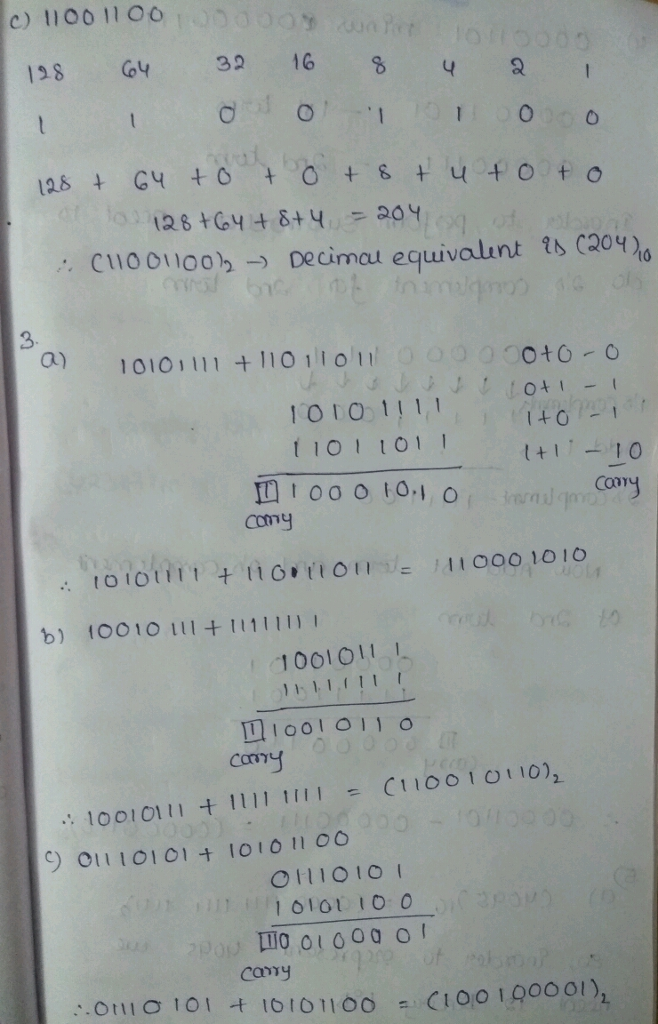 c) 11001100
128 64 32 16 8 4 2 1
1 1 0 0 1 1 0 0
128 + 64 + 0 + 0 + 8 + 4 + 0 + 0
128 + 64 + 8 + 4 = 204
∴ (11001100)2 → Decimal equivalent is (204)10
3.
a) 10101111 + 11011011
0+0 - 0
0+1 - 1
10101111
1+0 - 1
11011011
1+1 - 10
carry
1 10001010
carry
∴ 10101111 + 11011011 = 110001010
b) 10010111 + 11111111
10010111
11111111
1 10010110
carry
∴ 10010111 + 11111111 = (110010110)2
c) 01110101 + 10101100
01110101
10101100
1 00100001
carry
∴ 01110101 + 10101100 = (100100001)2